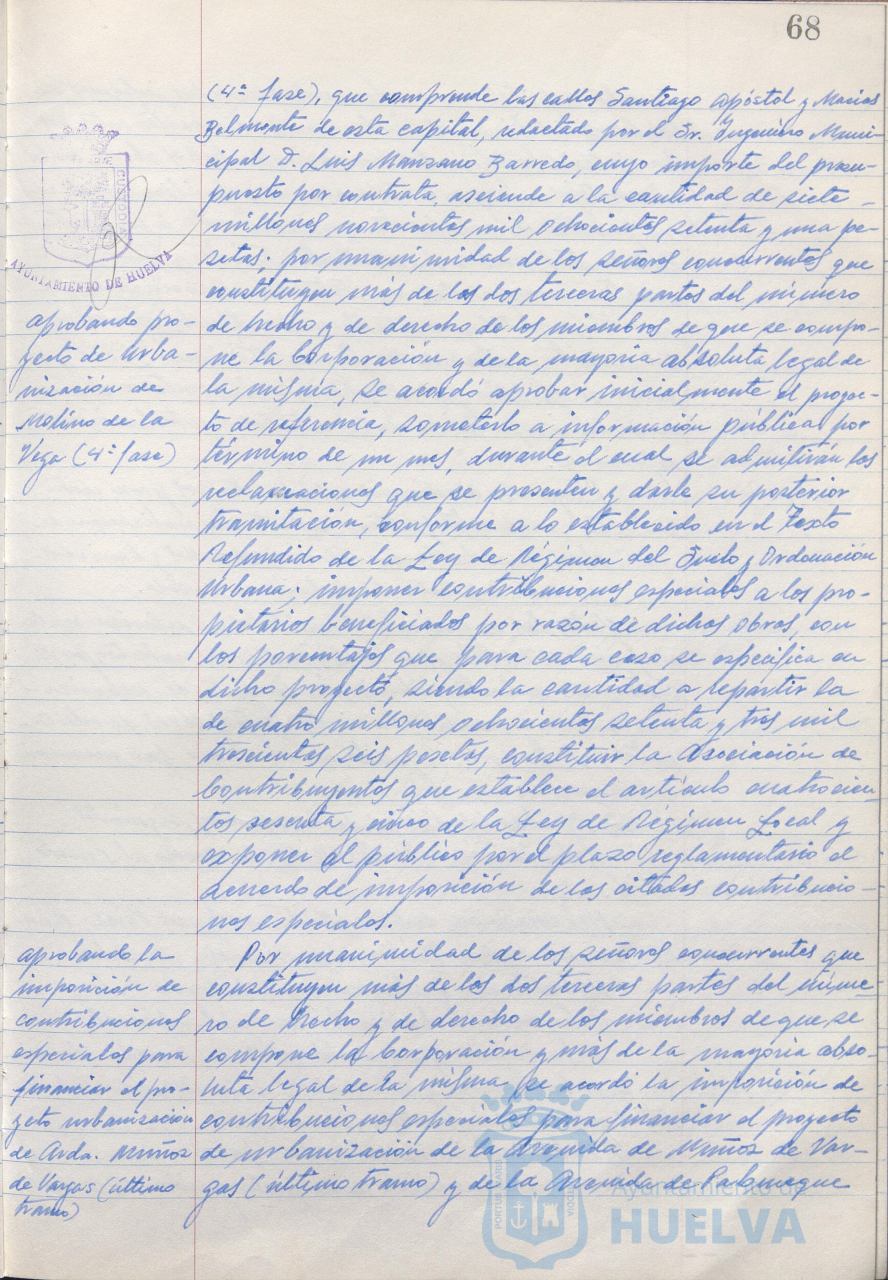 68
(4ª fase), que comprende las calles Santiago Apóstol y Macias
Belmonte de esta capital, redactado por el Sr. Ingeniero Muni-
cipal D. Luis Manzano Barredo, cuyo importe del presu-
puesto por contrata, asciende a la cantidad de siete
millones novecientas mil ochocientas setenta y una pe-
setas; por unanimidad de los señores concurrentes que
constituyen más de las dos terceras partes del número
de hecho y de derecho de los miembros de que se compo-
ne la Corporación y de la mayoria absoluta legal de
la misma, se acordó aprobar inicialmente el proyec-
to de referencia, someterlo a información pública por
término de un mes, durante el cual se admitirán las
reclamaciones que se presenten y darle su posterior
tramitación, conforme a lo establecido en el Texto
Refundido de la Ley de Régimen del Suelo y Ordenación
Urbana; imponer contribuciones especiales a los pro-
pietarios beneficiados por razón de dichas obras, con
los porcentajes que para cada caso se especifica en
dicho proyecto, siendo la cantidad a repartir la
de cuatro millones ochocientas setenta y tres mil
trescientas seis pesetas, constituir la Asociación de
Contribuyentes que establece el artículo cuatrocien-
tos sesenta y cinco de la Ley de Régimen Local y
exponer al público por el plazo reglamentario el
acuerdo de imposición de las citadas contribucio-
nes especiales.
Por unanimidad de los señores concurrentes que
constituyen más de los dos terceras partes del núme-
ro de hecho y de derecho de los miembros de que se
compone la Corporación y más de la mayoria abso-
luta legal de la misma, se acordó la imposición de
contribuciones especiales para financiar el proyecto
de urbanización de la Avenida de Muñoz de Var-
gas (último tramo) y de la Avenida de Palomeque
CUSTODIA
AYUNTAMIENTO DE HUELVA
aprobando pro-
yecto de urba-
nización de
Molino de la
Vega (4ª fase)
aprobando la
imposición de
contribuciones
especiales para
financiar el pro-
yecto urbanización
de Avda. Muñoz
de Vargas (último
tramo)
Ayuntamiento de
HUELVA